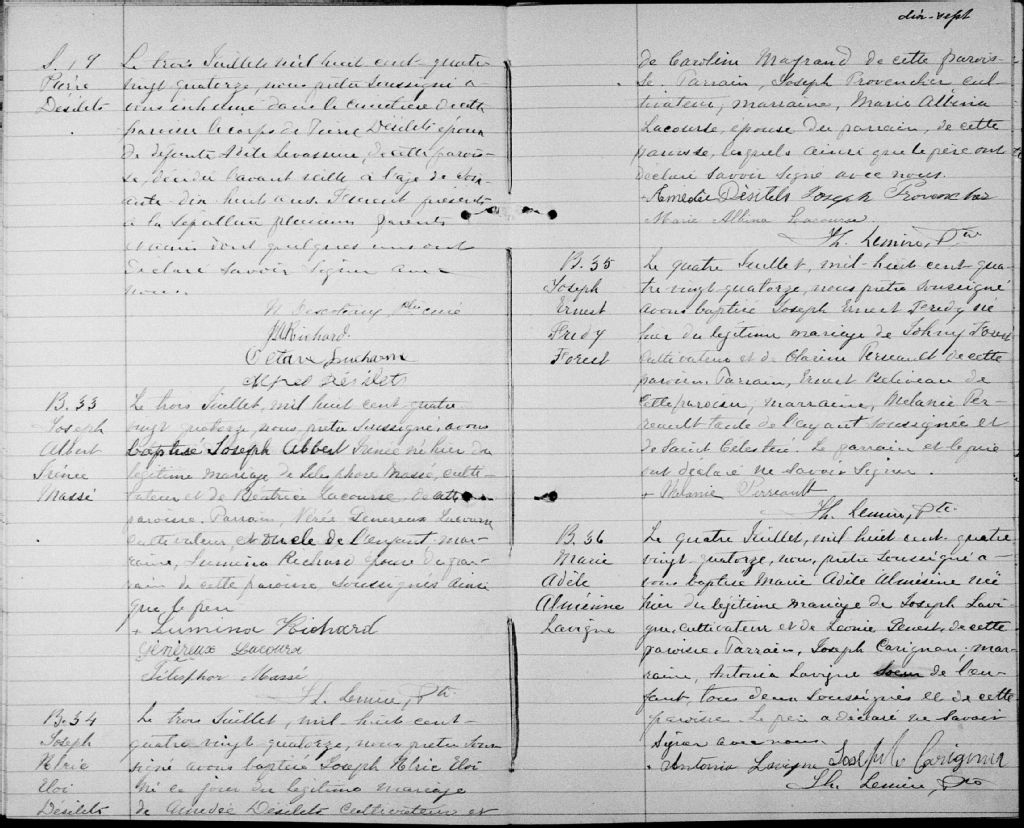 dix-sept
S. 17
Pierre
Désilets
Le trois Juillet, mil huit cent-quatre
vingt quatorze, nous prêtre soussigné a
vons inhumé dans le cimetière de cette
paroisse le corps de Pierre Désilets époux
de défunte Adite Levasseur, de cette parois-
se, décédé l'avant veille à l'âge de soix-
ante-dix huit ans. Furent présents
à la sépulture plusieurs parents
et amis dont quelques uns ont
déclaré savoir signer avec
nous.
N. ptre curé
Richard
Alfred Désilets
B. 33
Joseph
Albert
Irénée
Massé
Le trois Juillet, mil huit cent-quatre
vingt quatorze, nous, prêtre soussigné, avons
baptisé Joseph Albert Irénée né hier du
légitime mariage de Télesphore Massé, culti-
vateur et de Béatrice Lacourse, de cette
paroisse. Parrain, Généreux Lacourse
cultivateur, et oncle de l'enfant mar-
raine, Lumina Richard épouse du par-
rain de cette paroisse soussignés ainsi
que le père
+ Lumina Richard
Généreux Lacourse
Télesphor Massé
Th. Lemire, Ptre
B. 34
Joseph
Alric
Eloi
Désilets
Le trois Juillet, mil huit cent-
quatre vingt quatorze, nous prêtre sous
signé avons baptisé Joseph Alric Eloi
né ce jour du légitime mariage
de Amédée Désilets cultivateur et
de Caroline Magrand de cette parois-
se. Parrain, Joseph Provencher cul-
tivateur, marraine, Marie Albina
Lacourse, épouse du parrain, de cette
paroisse, lesquels ainsi que le père ont
déclaré savoir signé avec nous.
Amédée Désilets Joseph Provencher
Marie Albina Lacourse
Th. Lemire, Ptre
B. 35
Joseph
Ernest
Fredy
Forest
Le quatre Juillet, mil-huit cent qua-
tre-vingt-quatorze, nous prêtre soussigné
avons baptisé Joseph Ernest Fredy né
hier du légitime mariage de Johny Forest
cultivateur et de Clarisse Perreault de cette
paroisse. Parrain, Ernest Beliveau de
cette paroisse, marraine, Mélanie Per-
reault tante de l'enfant soussignée et
de Saint Célestin. Le parrain et le père
ont déclaré ne savoir signer.
+ Mélanie Perreault
Th. Lemire, Ptre
B. 36
Marie
Adèle
Alméxine
Lavigne
Le quatre Juillet, mil huit cent quatre
vingt quatorze, nous, prêtre soussigné a-
vons baptisé Marie Adèle née
hier du légitime mariage de Joseph Lavi-
gne, cultivateur et de Léonie de cette
paroisse. Parrain, Joseph Carignan mar-
raine, Antonia Lavigne soeur de l'en-
fant, tous deux soussignés et de cette
paroisse. Le père a déclaré ne savoir
signer avec nous.
Antonia Lavigne Joseph Carignan
Th. Lemire, Ptre